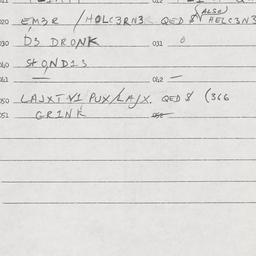 020 EM3R / HOLC3RN3 QED & (ALSO HELC3N3
030 D3 DRONK 031 0
040 St OND1S
061 — 062 —
050 LAJXTN1 PUX/LAJX. QED & (366
051 GRINK 052